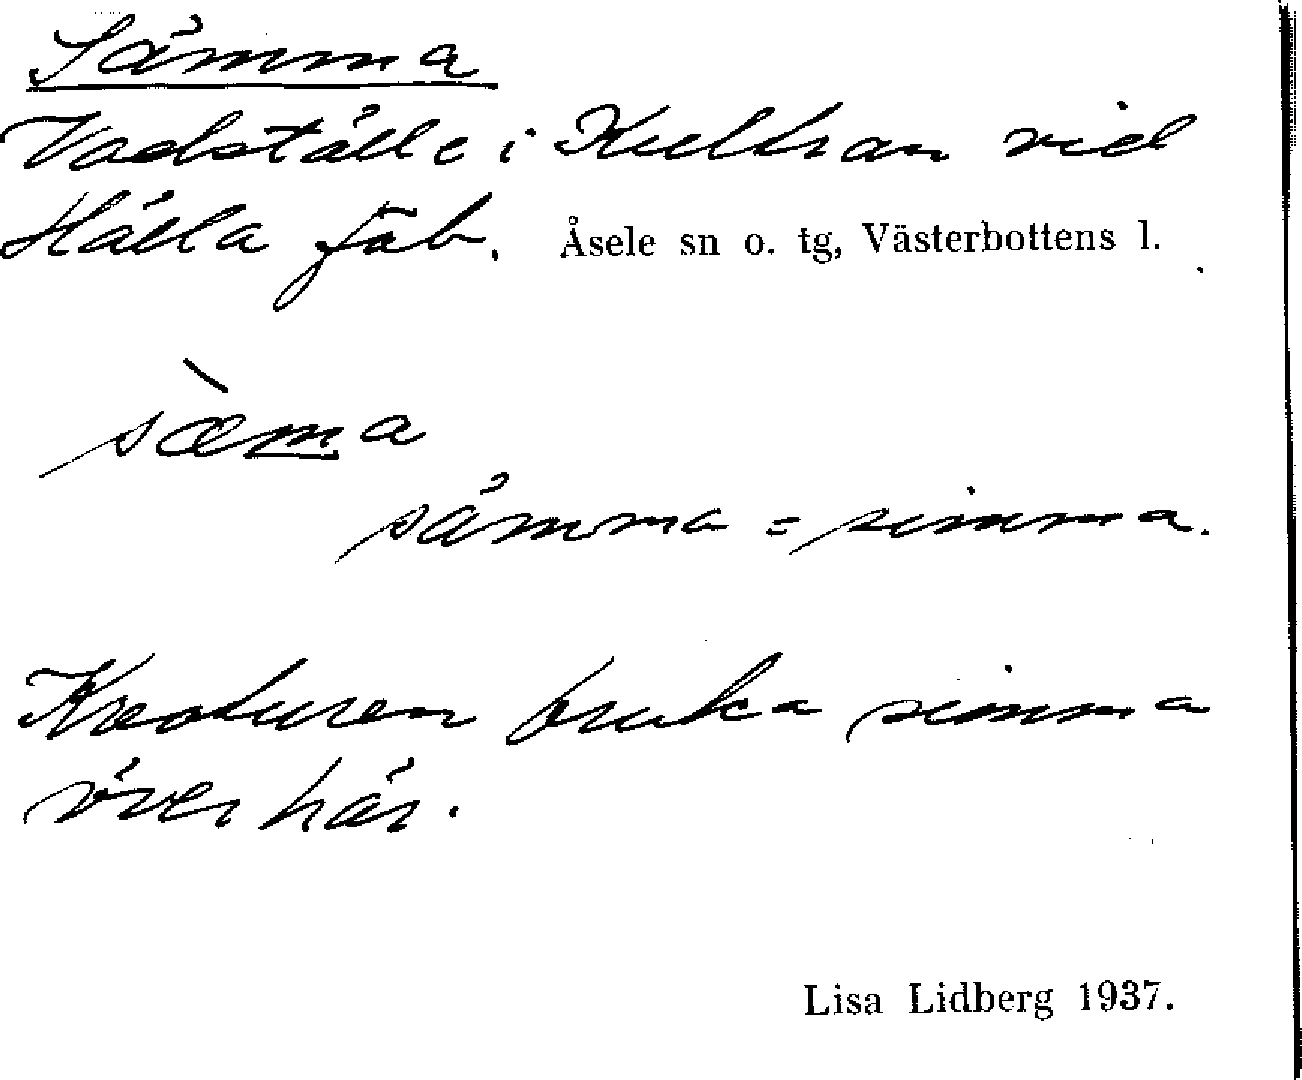 Sämma
Vadställe i Kultran vid
Hälla fäb. Åsele sn o. tg, Västerbottens l.
sæma
sämma = simma.
Kreaturen bruka simma
över här.
Lisa Lidberg 1937.